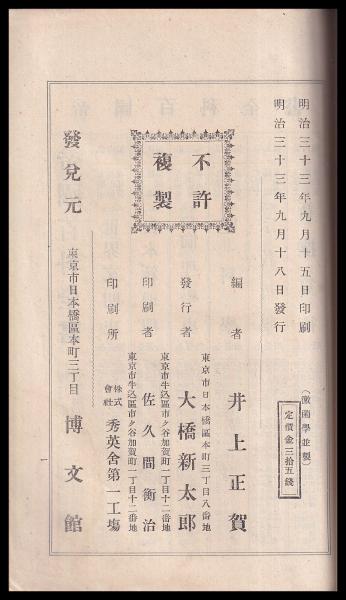 明治三十三年九月十五日印刷
明治三十三年九月十八日發行
(黴菌學並製)
定價金三拾五錢
不許
複製
編者
井上正賀
東京市日本橋區本町三丁目八番地
發行者
大橋新太郎
東京市牛込區市ケ谷加賀町一丁目十二番地
印刷者
佐久間衡治
東京市牛込區市ケ谷加賀町一丁目十二番地
印刷所
株式會社 秀英舍第一工場
發兌元
東京市日本橋區本町三丁目
博文館